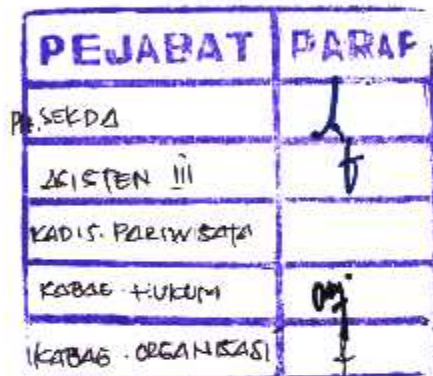 PEJABAT PARAF
Plt. SEKDA
ASISTEN III
KADIS. PARIWISATA
KABAG. HUKUM
KABAG. ORGANISASI